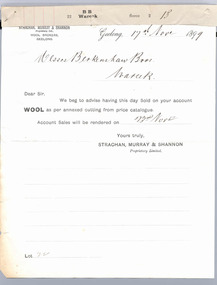 B B
Wareek
18
STRACHAN, MURRAY & SHANNON
WOOL BROKERS,
GEELONG
Geelong, 17th Nov 1899
Messrs Berkenshaw Bros
Wareek
Dear Sir,
We beg to advise having this day Sold on your account
WOOL as per annexed cutting from price catalogue.
Account Sales will be rendered on
Yours truly,
STRACHAN, MURRAY & SHANNON
Proprietary Limited.
Lot